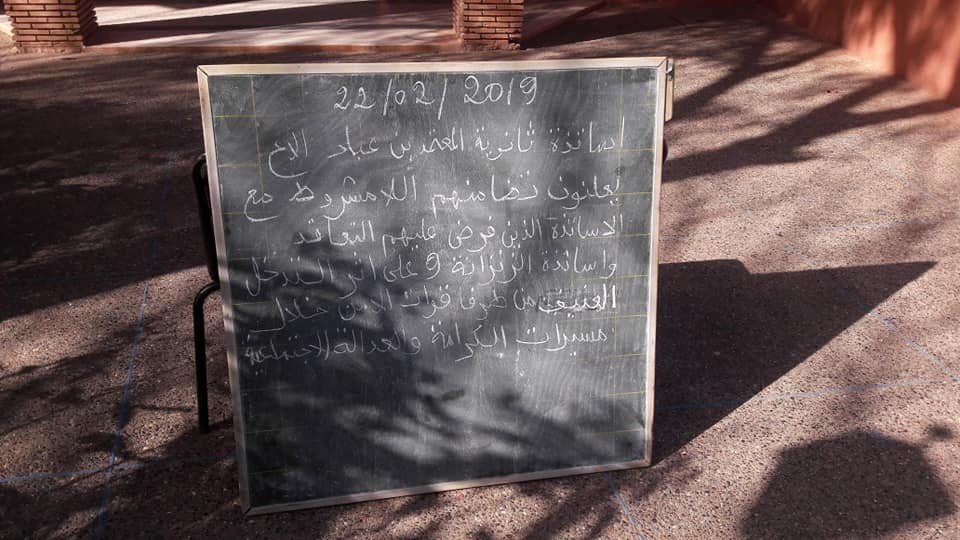 22/02/2019
اساتذة ثانوية المعتمد بن عباد الاع
يعلنون تضامنهم اللامشروط مع
الاساتذة الذين فرض عليهم التعاقد
واساتذة الزنزانة 9 على اثر التدخل
العنيف من طرف قوات الامن خلال
مسيرات الكرامة والعدالة الاجتماعية